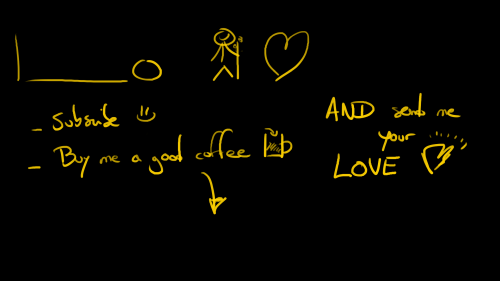 - Subscribe
- Buy me a good coffee
AND send me
your
LOVE